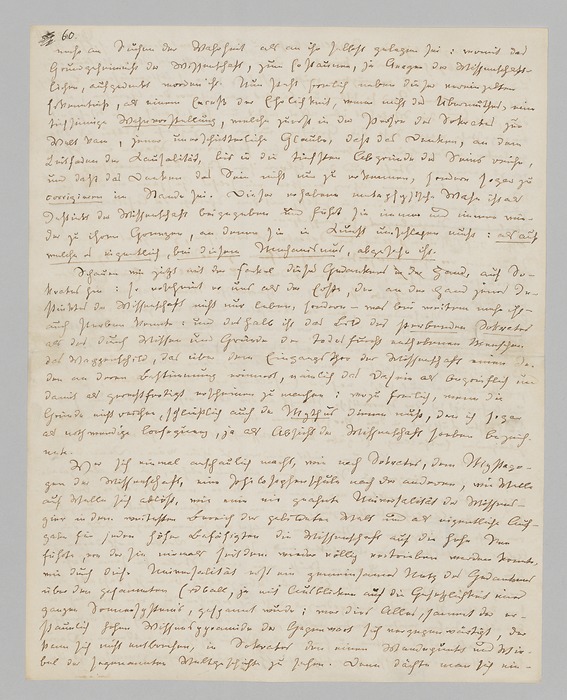 60.
mehr am Suchen der Wahrheit als an ihr selbst gelegen sei: womit das
Grundgeheimniß der Wissenschaft, zum Erstaunen, ja Aerger der Wissenschaft-
lichen, aufgedeckt worden ist. Nun steht freilich neben dieser vereinzelten
Erkenntniß, als einem Exceß der Ehrlichkeit, wenn nicht des Übermuthes, eine
tiefsinnige Wahnvorstellung, welche zuerst in der Person des Sokrates zur
Welt kam, jener unerschütterliche Glaube, daß das Denken, an dem
Leitfaden der Kausalität, bis in die tiefsten Abgründe des Seins reiche,
und daß das Denken das Sein nicht nur zu erkennen, sondern sogar zu
corrigieren im Stande sei. Dieser erhabene metaphysische Wahn ist als
Instinkt der Wissenschaft beigegeben und führt sie immer und immer wie-
der zu ihren Grenzen, an denen sie in Kunst umschlagen muß: als auf
welche es eigentlich, bei diesem Mechanismus, abgesehn ist.
Schauen wir jetzt mit der Fackel dieses Gedankens in der Hand, auf So-
krates hin: so erscheint er uns als der Erste, der an der Hand jenes In-
stinktes der Wissenschaft nicht nur leben, sondern – was bei weitem mehr ist –
auch sterben konnte: und deshalb ist das Bild des sterbenden Sokrates
als des durch Wissen und Gründe der Todesfurcht enthobenen Menschen
das Wappenschild, das über dem Eingangsthor der Wissenschaft einen Je-
den an deren Bestimmung erinnert, nämlich das Dasein als begreiflich und
damit als gerechtfertigt erscheinen zu machen: wozu freilich, wenn die
Gründe nicht reichen, schließlich auch der Mythus dienen muß, den ich sogar
als nothwendige Consequenz, ja als Absicht der Wissenschaft soeben bezeich-
nete.
Wer sich einmal anschaulich macht, wie nach Sokrates, dem Mystago-
gen der Wissenschaft, eine Philosophenschule nach der anderen, wie Welle
auf Welle sich ablöst, wie eine nie geahnte Universalität der Wissens-
gier in dem weitesten Bereich der gebildeten Welt und als eigentliche Auf-
gabe für jeden höher Befähigten die Wissenschaft auf die hohe See
führte, von der sie niemals seitdem wieder völlig vertrieben werden konnte,
wie durch diese Universalität erst ein gemeinsames Netz des Gedankens
über den gesammten Erdball, ja mit Ausblicken auf die Gesetzlichkeit eines
ganzen Sonnensystems, gespannt wurde: wer dies Alles, sammt der er-
staunlich hohen Wissenspyramide der Gegenwart sich vergegenwärtigt, der
kann sich nicht entbrechen, in Sokrates den einen Wendepunkt und Wir-
bel der sogenannten Weltgeschichte zu sehen. Denn dächte man sich ein-